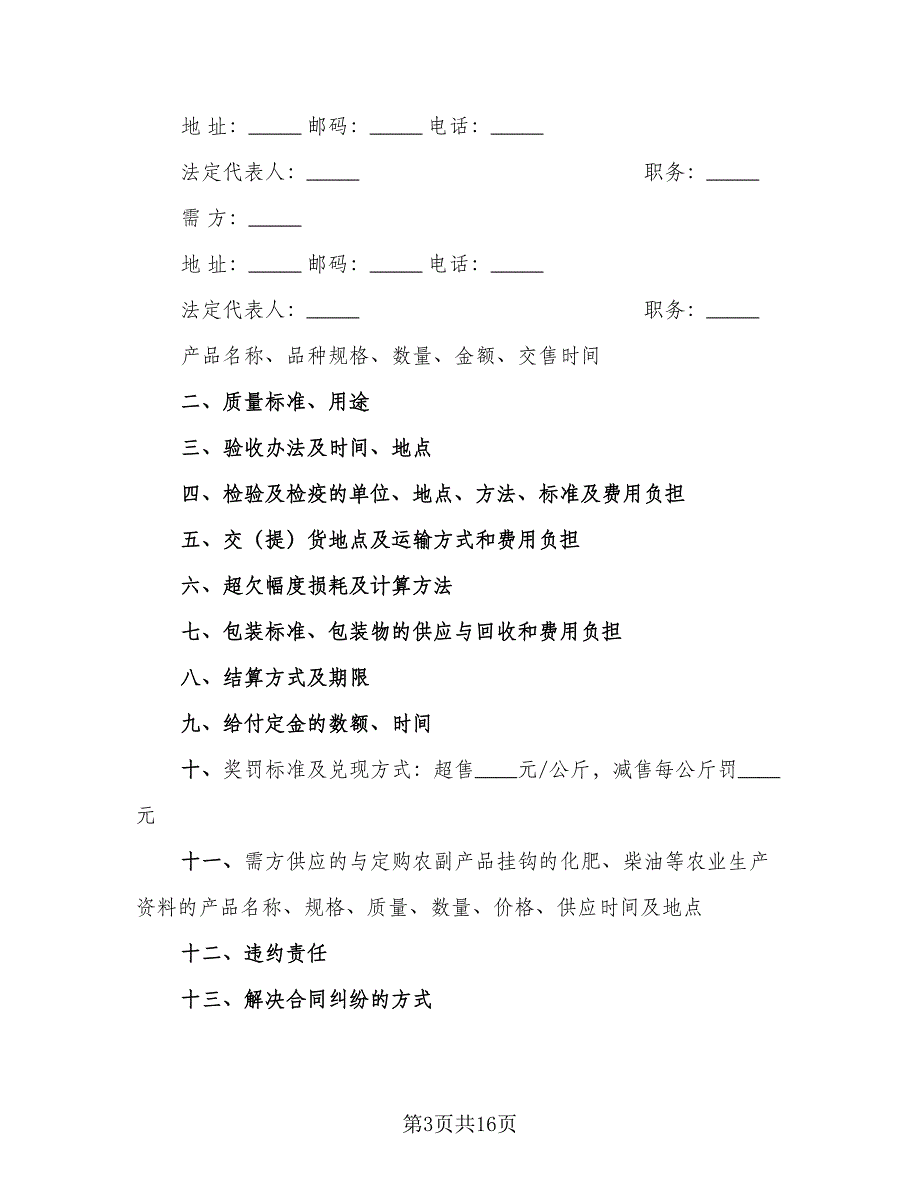 地 址：_____ 邮码：_____ 电话：_____
法定代表人：_____ 职务：_____
需 方：_____
地 址：_____ 邮码：_____ 电话：_____
法定代表人：_____ 职务：_____
产品名称、品种规格、数量、金额、交售时间
二、质量标准、用途
三、验收办法及时间、地点
四、检验及检疫的单位、地点、方法、标准及费用负担
五、交（提）货地点及运输方式和费用负担
六、超欠幅度损耗及计算方法
七、包装标准、包装物的供应与回收和费用负担
八、结算方式及期限
九、给付定金的数额、时间
十、奖罚标准及兑现方式：超售____元/公斤，减售每公斤罚____
元
十一、需方供应的与定购农副产品挂钩的化肥、柴油等农业生产
资料的产品名称、规格、质量、数量、价格、供应时间及地点
十二、违约责任
十三、解决合同纠纷的方式
第3页共16页